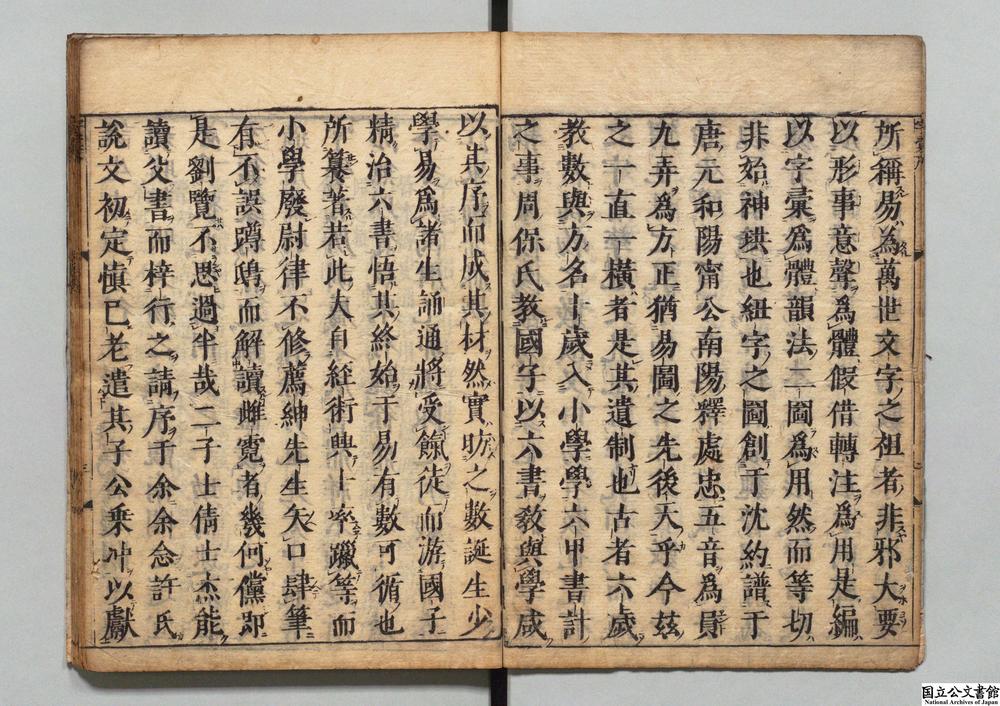 所稱易為萬世文字之祖者非邪大要
以形事意聲為體假借轉注為用是編
以字彙為體韻法二圖為用然而等切
非始神珙也紐字之圖創于沈約譜于
唐元和陽甯公南陽釋處忠五音為員
九弄為方正猶易圖之先後天乎今茲
之一直一橫者是其遺制也古者六歲
教數與方名十歲入小學學六甲書計
之事周保氏教國子以六書敎與學咸
以其序而成其材然實昉之數誕生少
學易為諸生誦通將受餼徒而游國子
精治六書悟其終始于易有數可循也
所纂著若此大自經術興士率躐等而
小學廢尉律不修薦紳先生矢口肆筆
有不誤蹲鴟而解讀雌霓者幾何儻即
是劉覽不思過半哉二子士倩士杰能
讀父書而梓行之請序于余余念許氏
說文初定慎已老遣其子公乘冲以獻
国立公文書館
National Archives of Japan